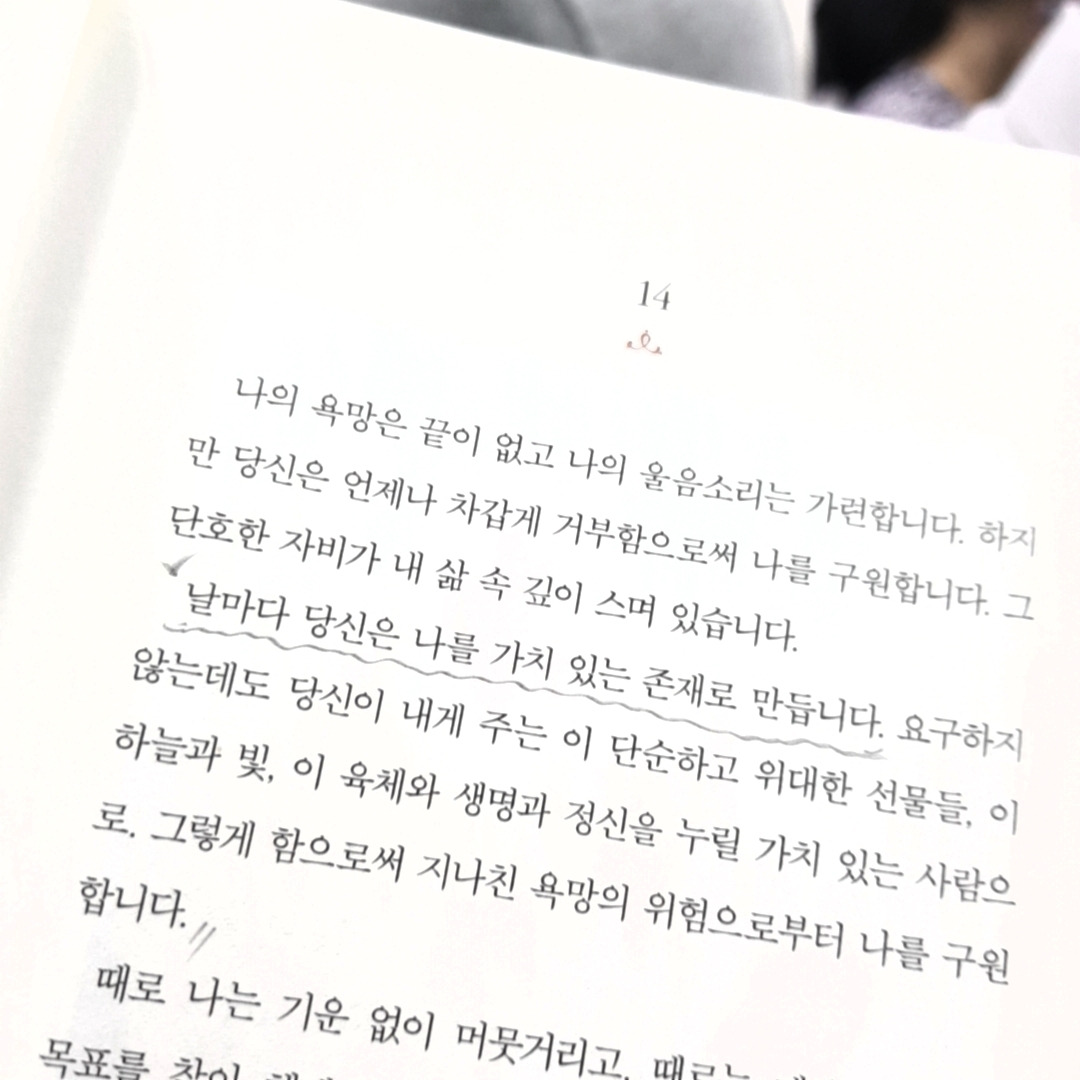 14
나의 욕망은 끝이 없고 나의 울음소리는 가련합니다. 하지
만 당신은 언제나 차갑게 거부함으로써 나를 구원합니다. 그
단호한 자비가 내 삶 속 깊이 스며 있습니다.
날마다 당신은 나를 가치 있는 존재로 만듭니다. 요구하지
않는데도 당신이 내게 주는 이 단순하고 위대한 선물들, 이
하늘과 빛, 이 육체와 생명과 정신을 누릴 가치 있는 사람으
로. 그렇게 함으로써 지나친 욕망의 위험으로부터 나를 구원
합니다.
때로 나는 기운 없이 머뭇거리고, 때로는
목표를 찾아